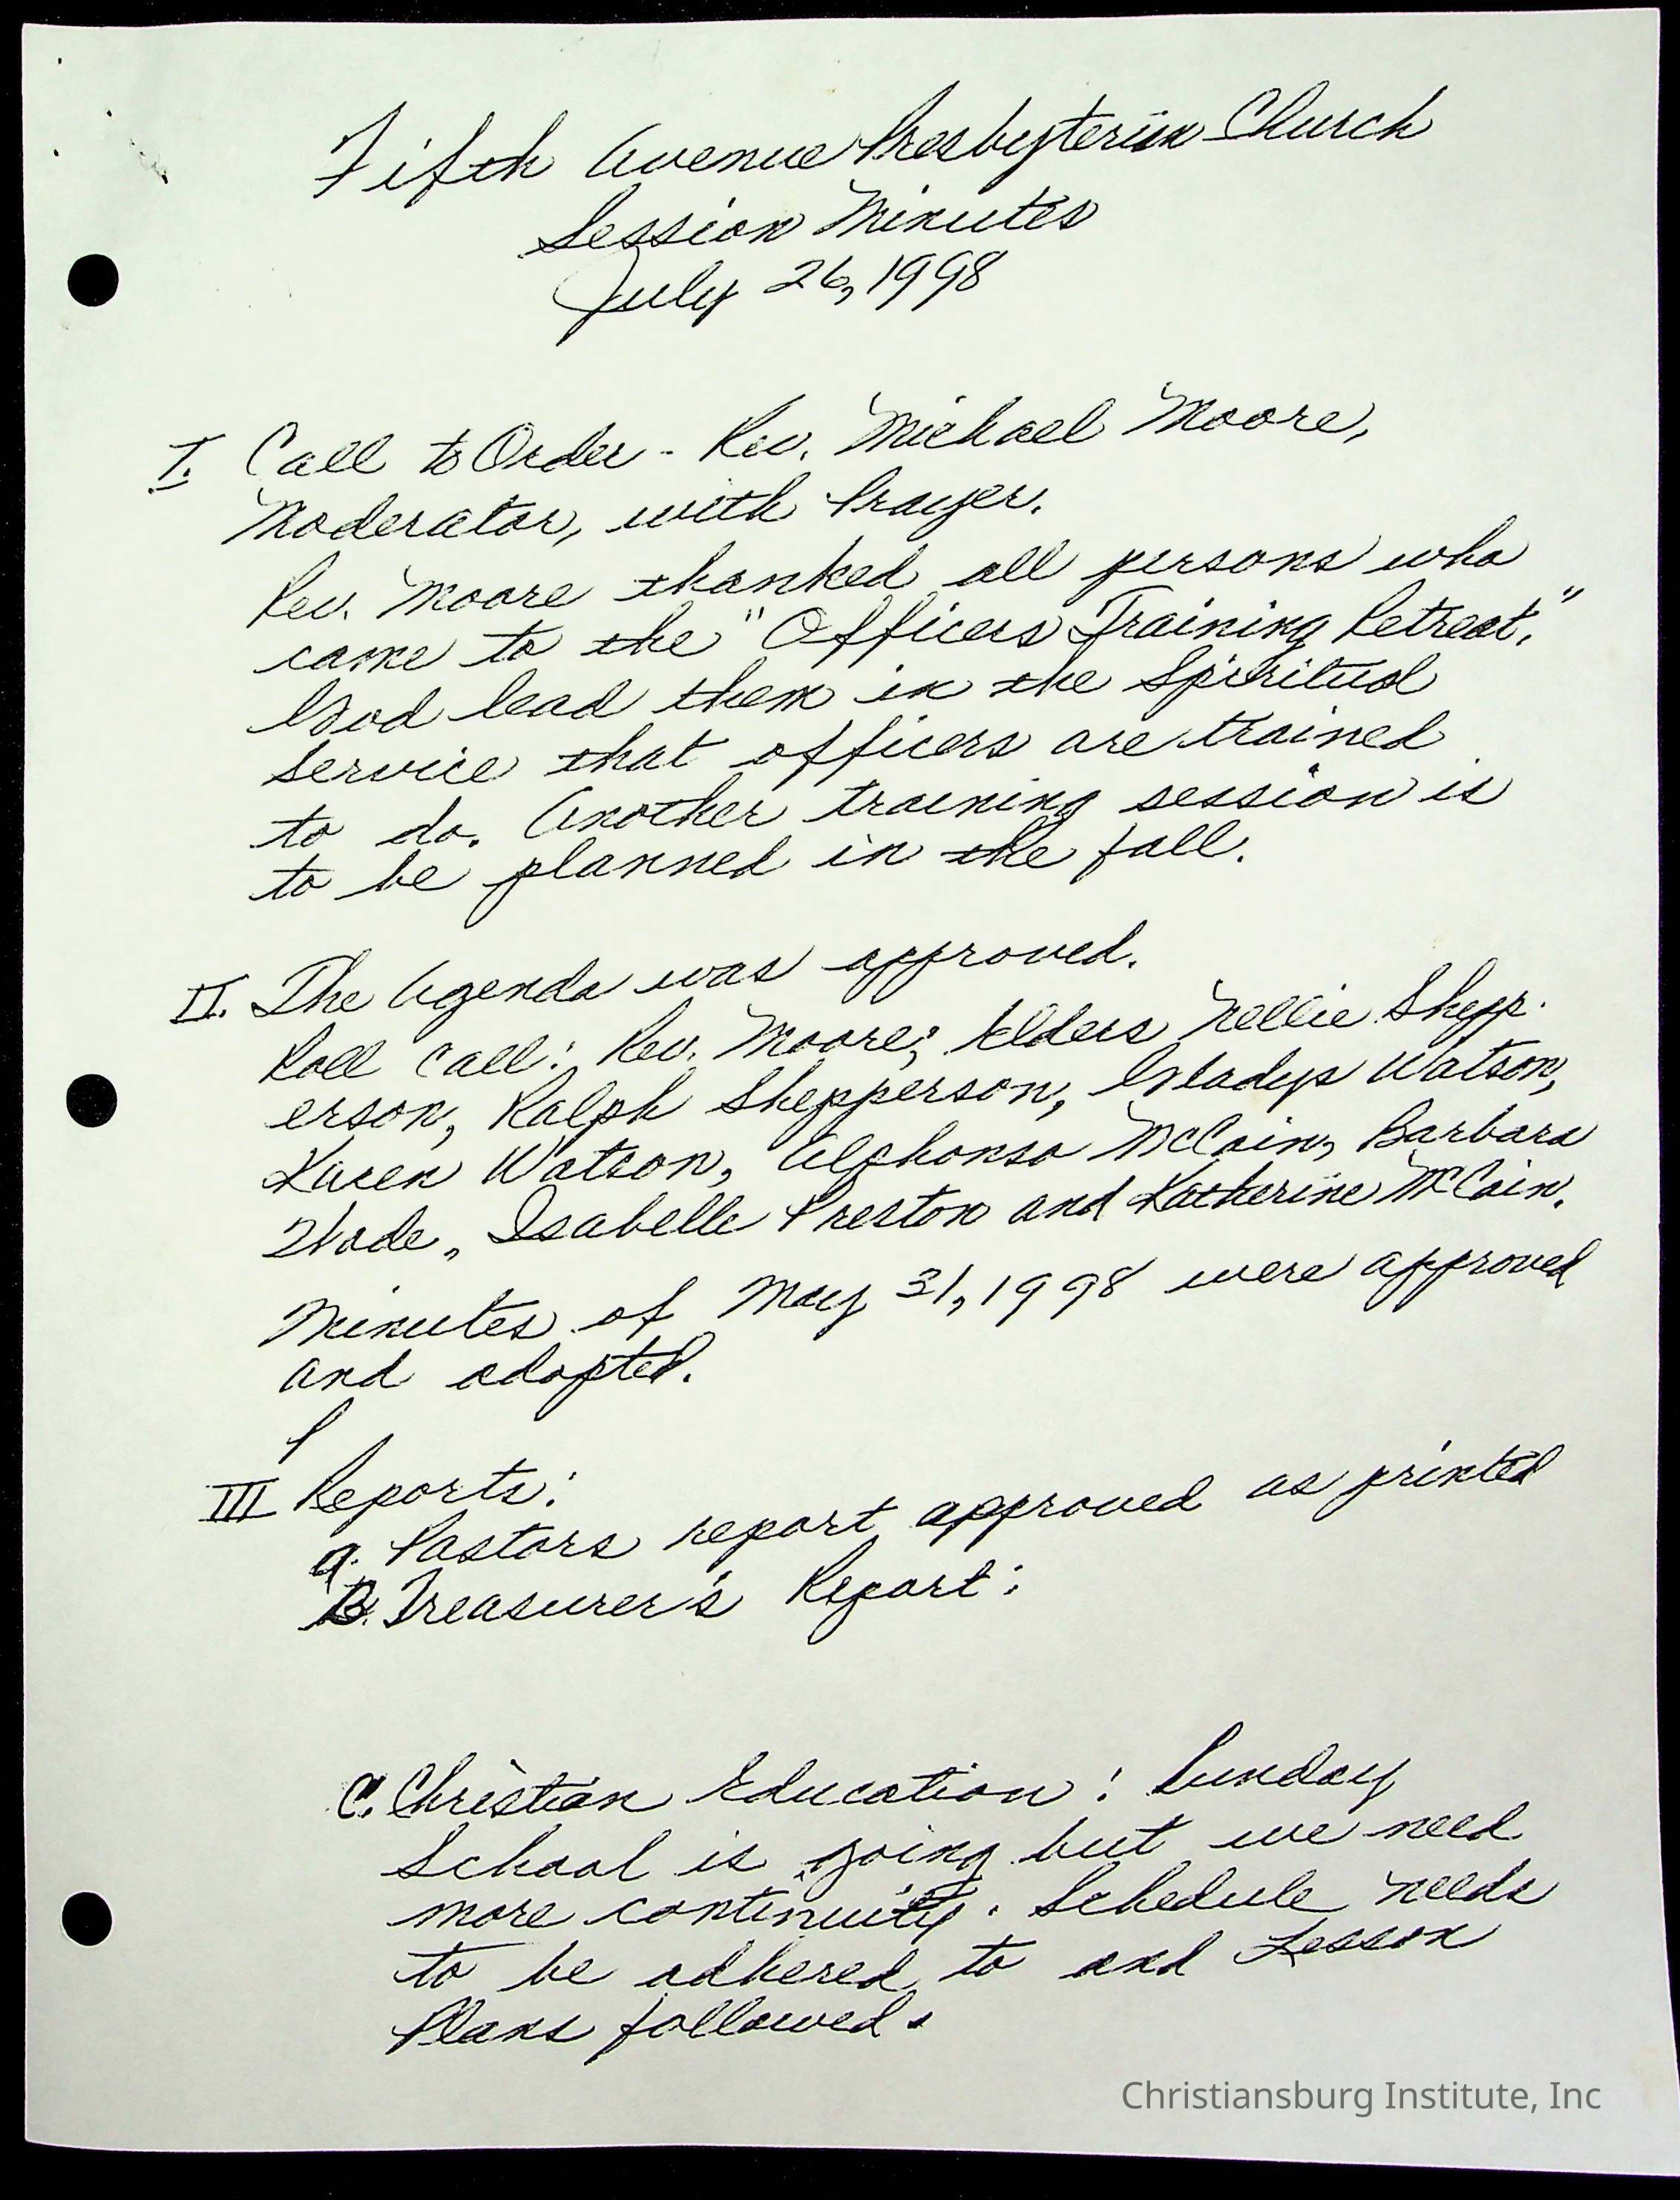 Fifth Avenue Presbyterian Church
Session Minutes
July 26, 1998
I. Call to Order - Rev. Michael Moore,
Moderator, with Prayer.
Rev. Moore thanked all persons who
came to the "Officers Training Retreat."
God lead them in the Spiritual
Service that officers are trained
to do. Another training session is
to be planned in the fall.
II. The Agenda was approved.
Roll Call: Rev. Moore; Elders Nellie Shepp-
erson, Ralph Shepperson, Gladys Watson,
Karen Watson, Alphonso McCain, Barbara
Wade, Isabelle Preston and Katherine McCain.
Minutes of May 31, 1998 were approved
and adopted.
III Reports:
a. Pastors report approved as printed
B. Treasurer's Report:
C. Christian Education: Sunday
School is going but we need
more continuity. Schedule needs
to be adhered to and Lesson
Plans followed.
Christiansburg Institute, Inc